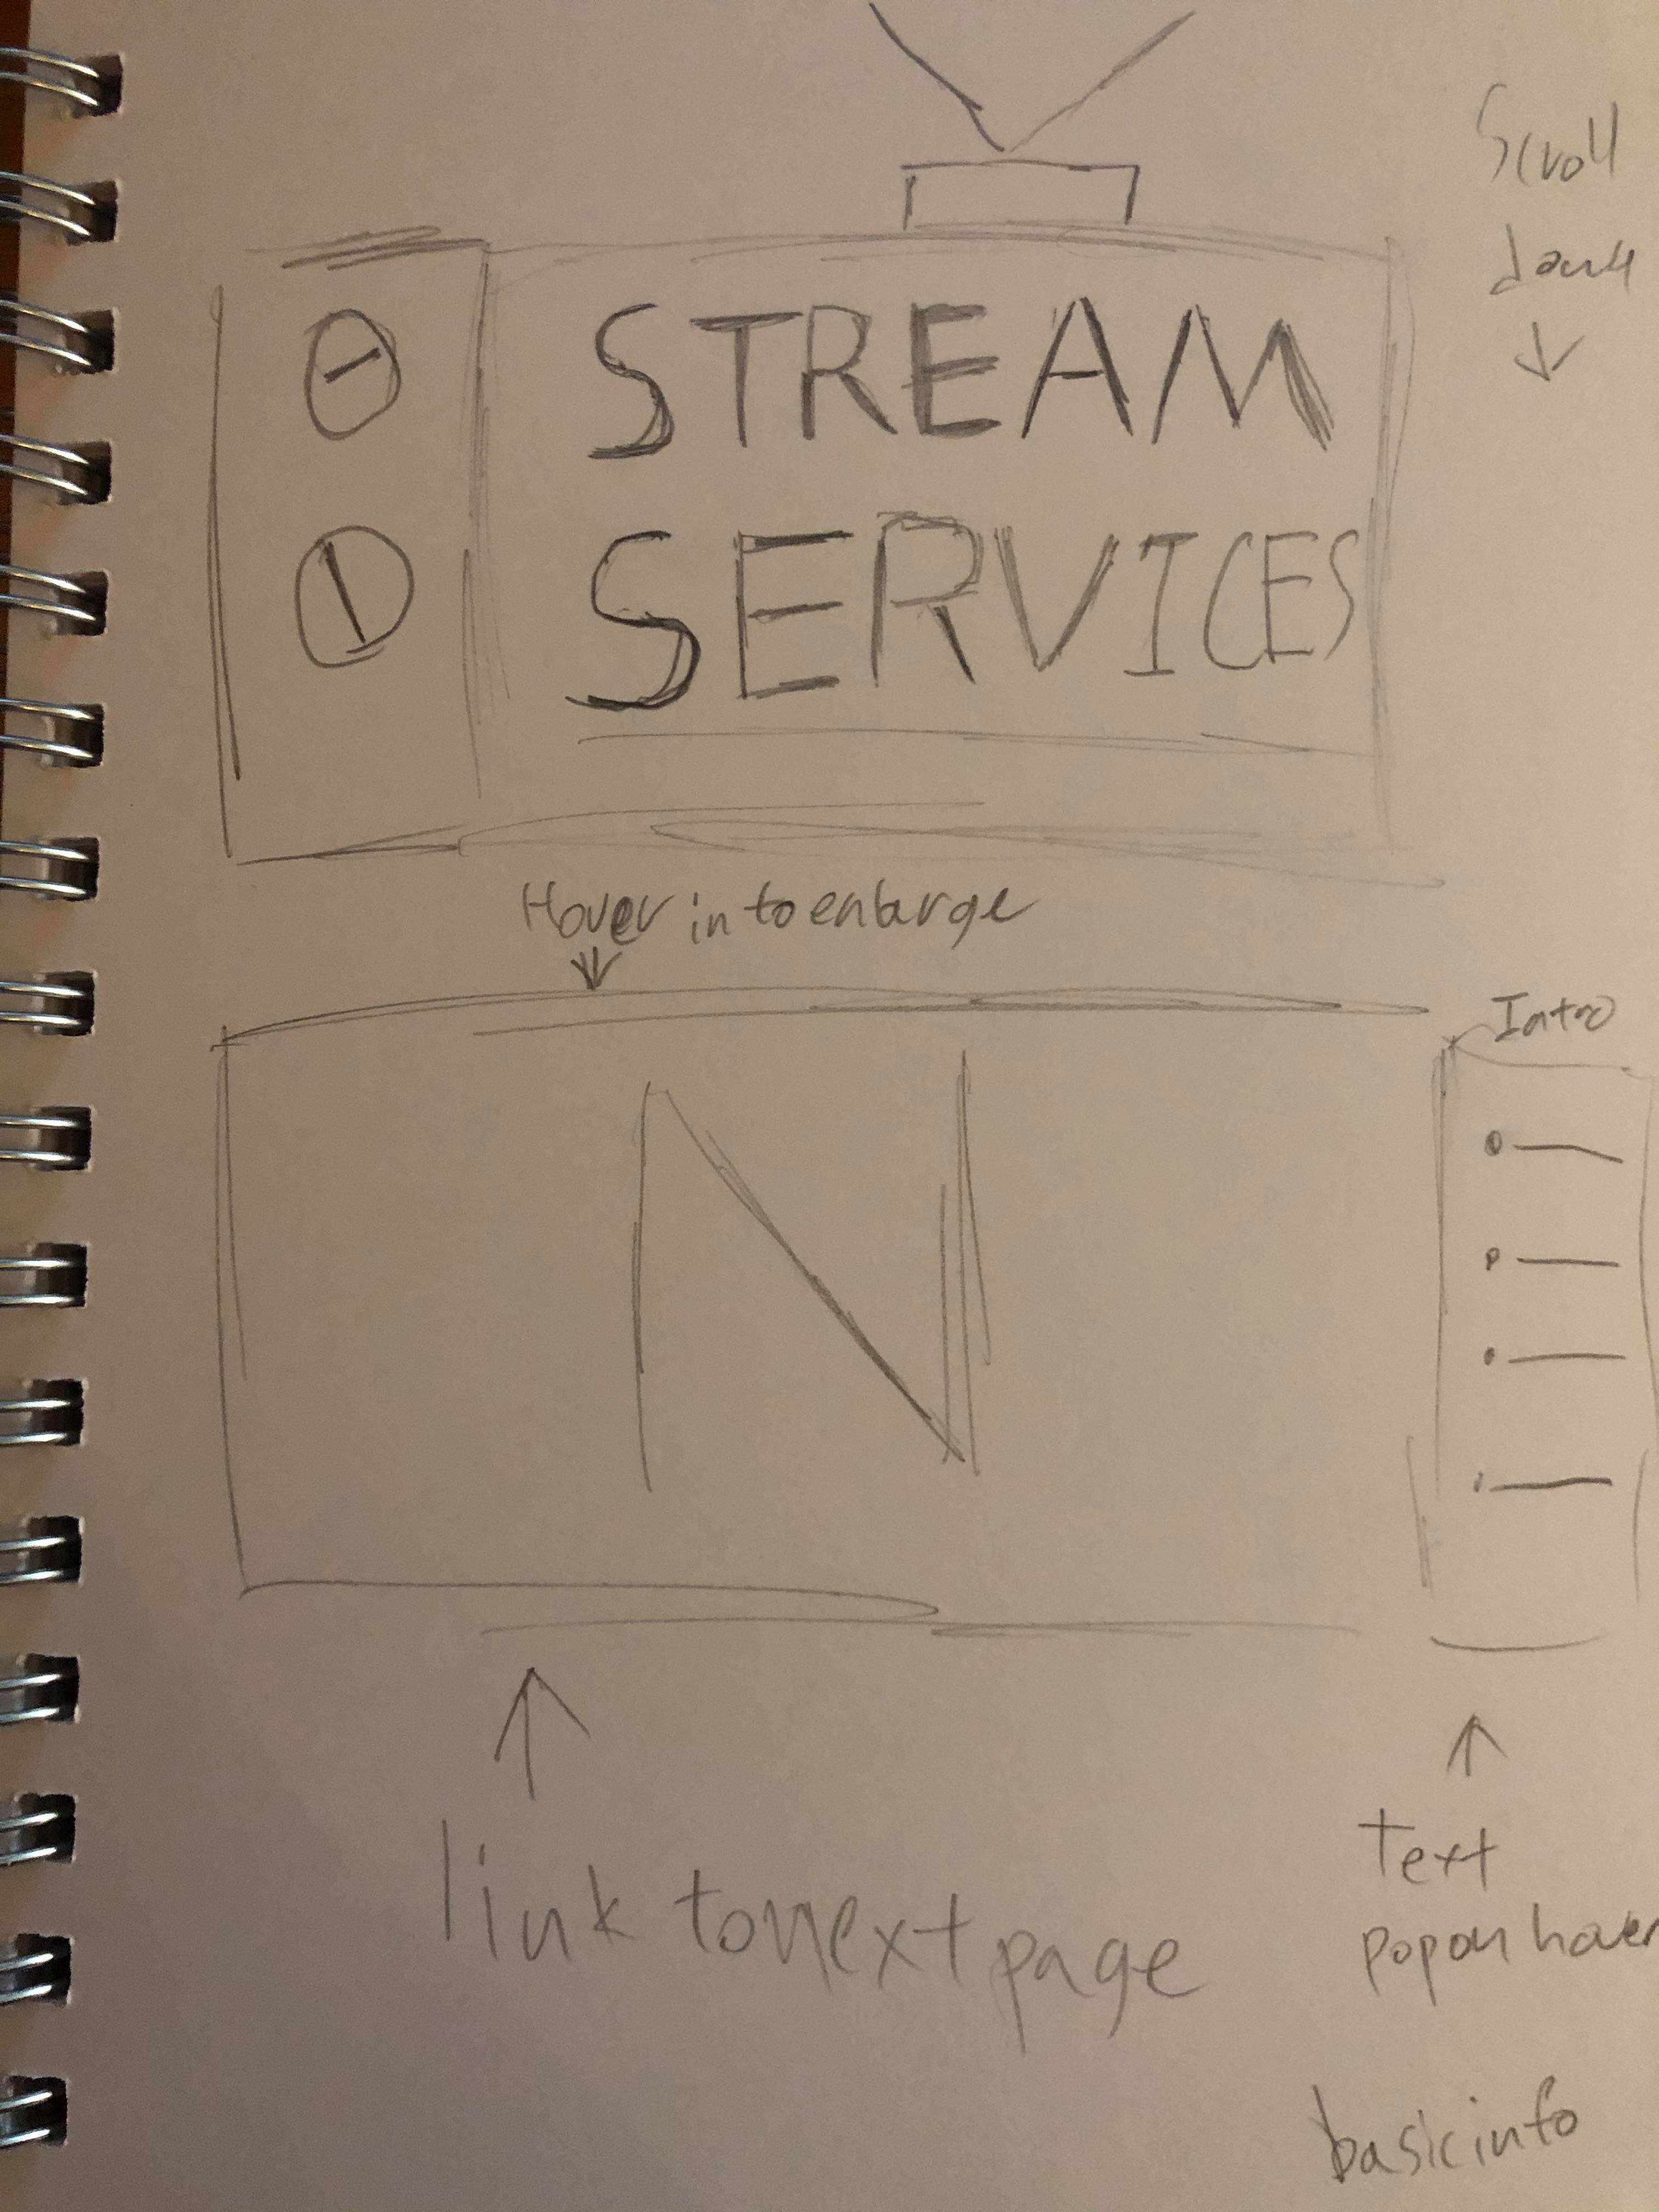 Scroll
down
STREAM
SERVICES
Hover in to enlarge
Intro
N
link to next page
Text
pop on hover
basic info